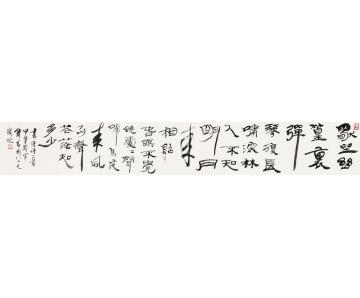 獨坐幽
篁裏
彈
琴復長
嘯深林
人不知
明月
來
相照
春眠不覺
曉處〻聞
啼鳥夜
來風
雨聲
花落知
多少
書唐詩二首